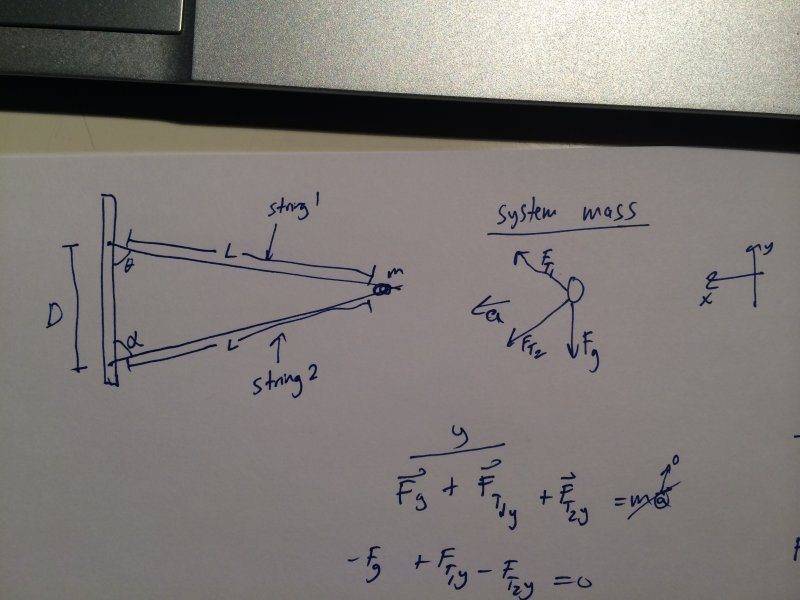 string 1
L
θ
m
D
α
L
string 2
system mass
F_T1
a
F_T2
F_g
y
x
y
F⃗_g + F⃗_T1y + F⃗_T2y = ma 0
-F_g + F_T1y - F_T2y = 0